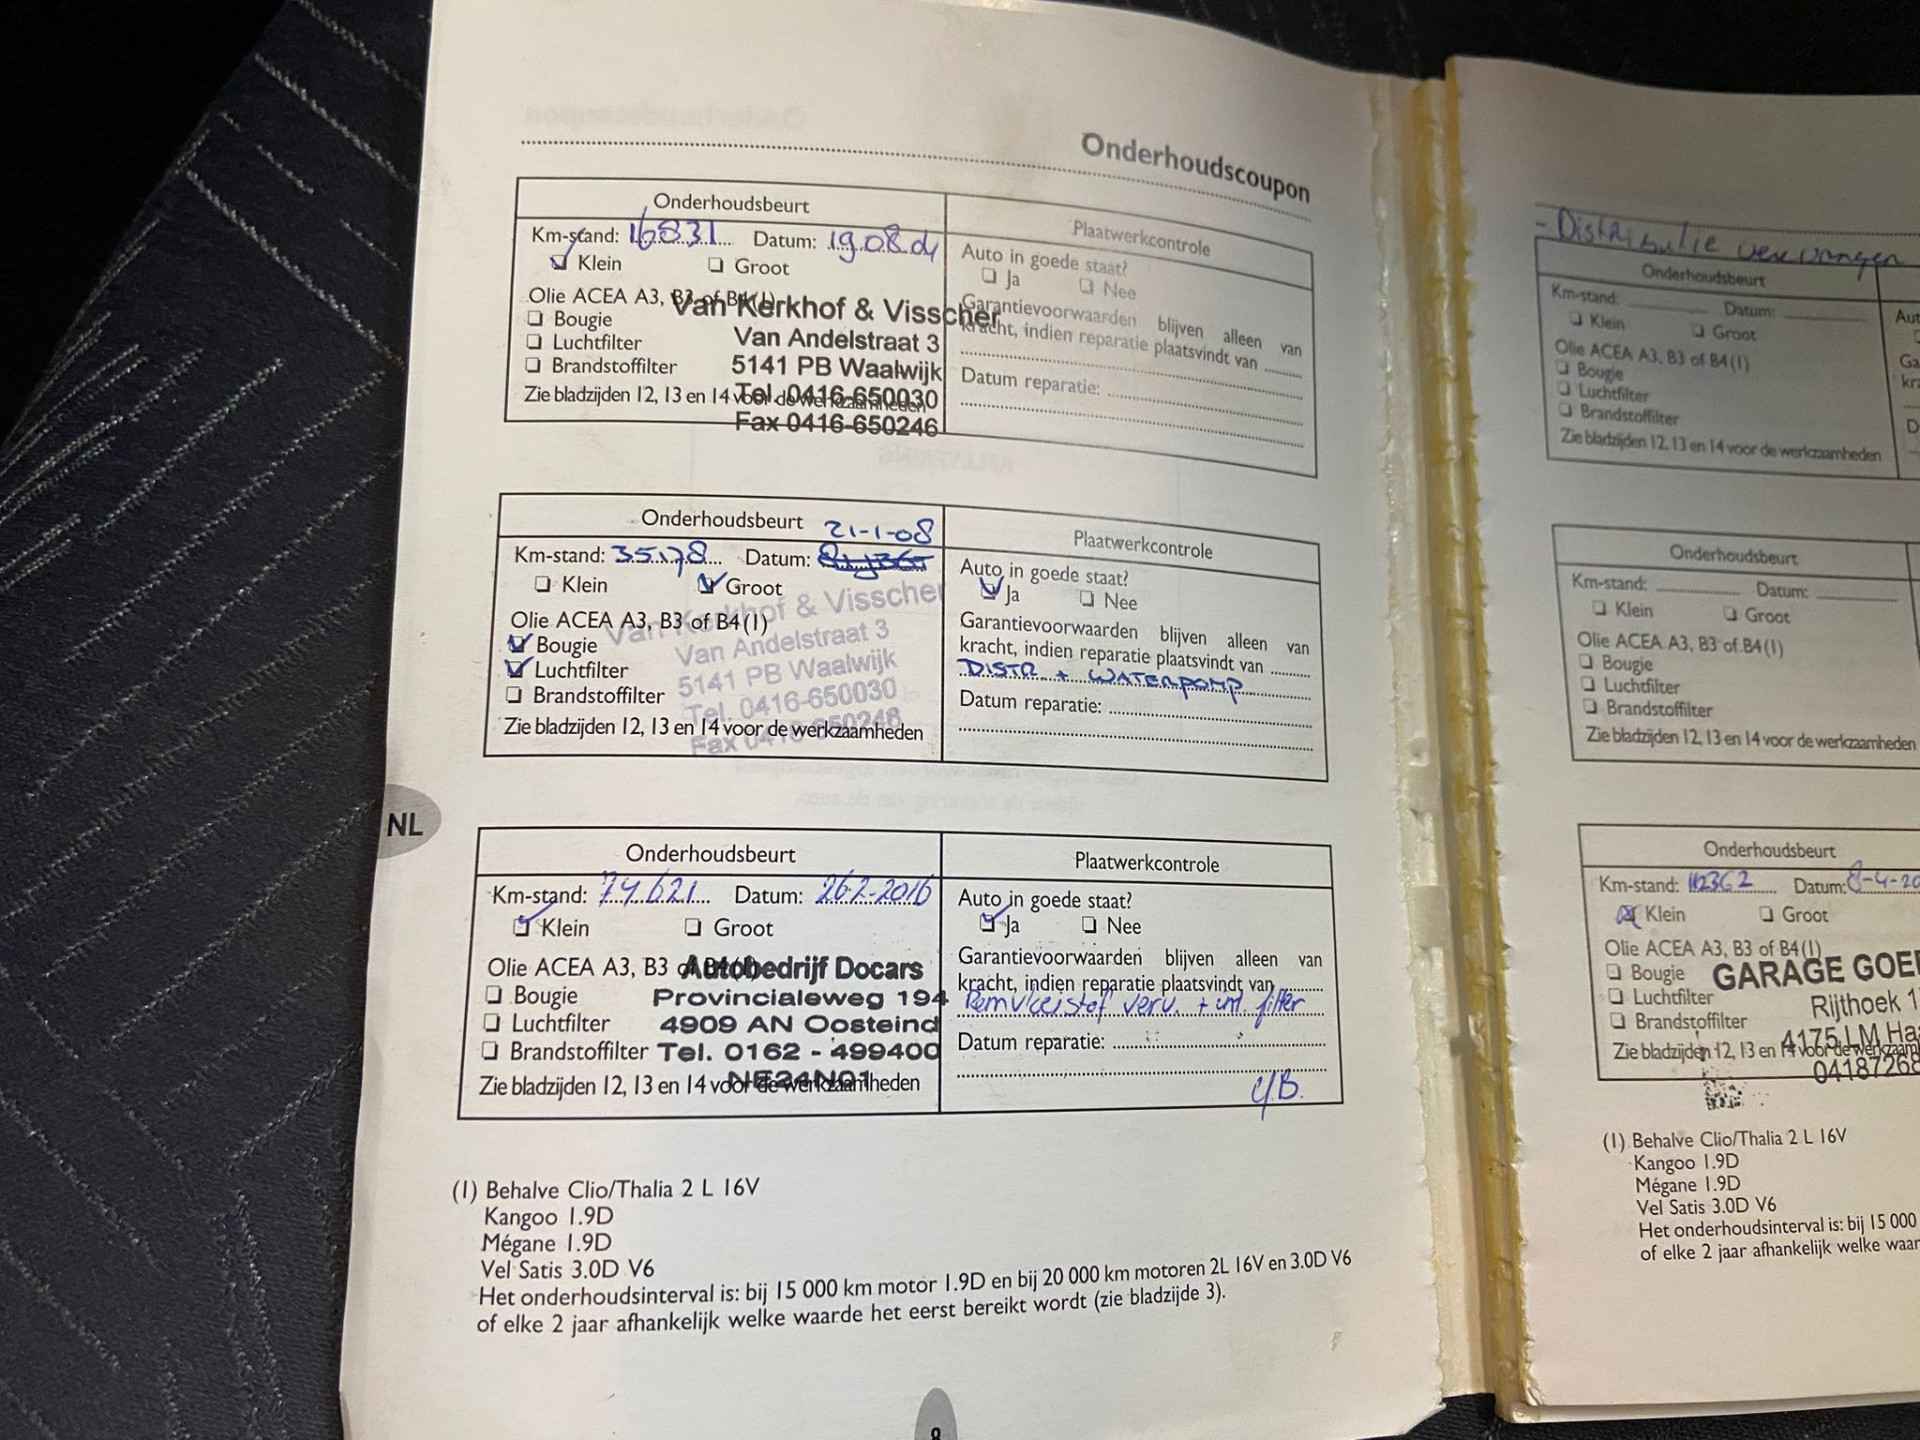 Onderhoudscoupon
Onderhoudsbeurt
Km-stand: 16831 Datum: 19.08.04
Klein Groot
Olie ACEA A3, B3 of B4(1)
Bougie
Luchtfilter
Brandstoffilter
Zie bladzijden 12, 13 en 14 voor de werkzaamheden
Van Kerkhof & Visscher
Van Andelstraat 3
5141 PB Waalwijk
Tel. 0416-650030
Fax 0416-650246
Plaatwerkcontrole
Auto in goede staat?
Ja Nee
Garantievoorwaarden blijven alleen van
kracht, indien reparatie plaatsvindt van
Datum reparatie:
Onderhoudsbeurt
21-1-08
Km-stand: 35.178 Datum:
Klein Groot
Olie ACEA A3, B3 of B4(1)
Bougie
Luchtfilter
Brandstoffilter
Zie bladzijden 12, 13 en 14 voor de werkzaamheden
Van Kerkhof & Visscher
Van Andelstraat 3
5141 PB Waalwijk
Tel. 0416-650030
Fax 0416-650246
Plaatwerkcontrole
Auto in goede staat?
Ja Nee
Garantievoorwaarden blijven alleen van
kracht, indien reparatie plaatsvindt van
DISTR + WATERPOMP
Datum reparatie:
NL
Onderhoudsbeurt
Km-stand: 74.621 Datum: 26-2-2016
Klein Groot
Olie ACEA A3, B3 of B4(1)
Bougie
Luchtfilter
Brandstoffilter
Zie bladzijden 12, 13 en 14 voor de werkzaamheden
Autobedrijf Docars
Provincialeweg 194
4909 AN Oosteind
Tel. 0162 - 499400
NE24N01
Plaatwerkcontrole
Auto in goede staat?
Ja Nee
Garantievoorwaarden blijven alleen van
kracht, indien reparatie plaatsvindt van
Remvloeistof verv. + int. filter
Datum reparatie:
(1) Behalve Clio/Thalia 2 L 16V
Kangoo 1.9D
Mégane 1.9D
Vel Satis 3.0D V6
Het onderhoudsinterval is: bij 15 000 km motor 1.9D en bij 20 000 km motoren 2L 16V en 3.0D V6
of elke 2 jaar afhankelijk welke waarde het eerst bereikt wordt (zie bladzijde 3).
8
- Distributie vervangen
Onderhoudsbeurt
Km-stand: Datum:
Klein Groot
Olie ACEA A3, B3 of B4(1)
Bougie
Luchtfilter
Brandstoffilter
Zie bladzijden 12, 13 en 14 voor de werkzaamheden
Onderhoudsbeurt
Km-stand: Datum:
Klein Groot
Olie ACEA A3, B3 of B4(1)
Bougie
Luchtfilter
Brandstoffilter
Zie bladzijden 12, 13 en 14 voor de werkzaamheden
Onderhoudsbeurt
Km-stand: 112362 Datum: 8-4-20
Klein Groot
Olie ACEA A3, B3 of B4(1)
Bougie
Luchtfilter
Brandstoffilter
Zie bladzijden 12, 13 en 14 voor de werkzaam
GARAGE GOE
Rijthoek 1
4175 LM Ha
04187268
(1) Behalve Clio/Thalia 2 L 16V
Kangoo 1.9D
Mégane 1.9D
Vel Satis 3.0D V6
Het onderhoudsinterval is: bij 15 000
of elke 2 jaar afhankelijk welke waar